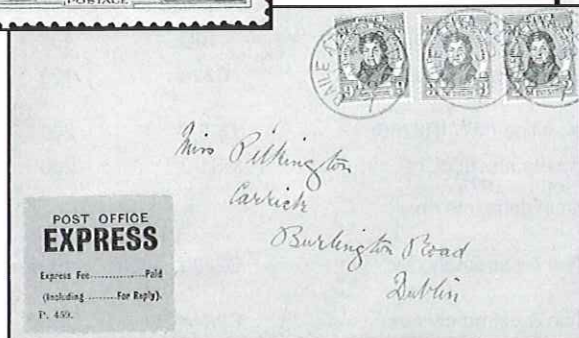 POSTAGE
BAILE ÁTHA
Miss Pilkington
Carrick
Burlington Road
Dublin
POST OFFICE
EXPRESS
Express Fee..............Paid
(Including ........For Reply).
P. 459.